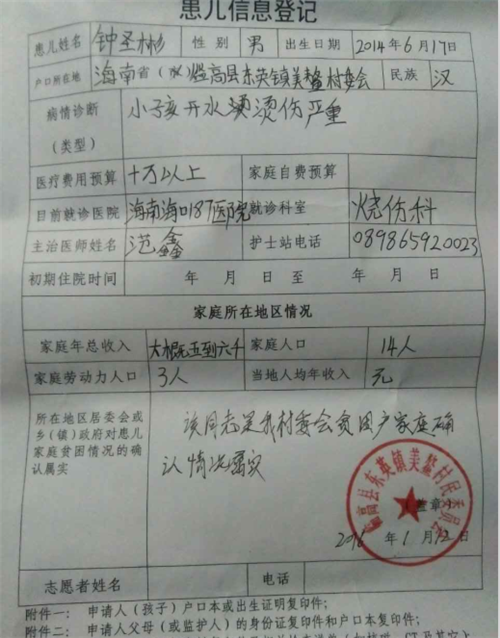 患儿信息登记
患儿姓名 钟圣彬 性别 男 出生日期 2014年6月17日
户口所在地 海南省(水)临高县东英镇美鳌村委会 民族 汉
病情诊断 小孩开水烫烫伤严重
(类型)
医疗费用预算 十万以上 家庭自费预算
目前就诊医院 海南海口187医院 就诊科室 烧伤科
主治医师姓名 范鑫 护士站电话 089865920023
初期住院时间 年 月 日至 年 月 日
家庭所在地区情况
家庭年总收入 大概五到六千 家庭人口 14人
家庭劳动力人口 3人 当地人均年收入 元
所在地区居委会或 该同志是我村委会贫困户家庭确
乡(镇)政府对患儿
家庭贫困情况的确 认情况属实
认属实
临高县东英镇美鳌村民委员会
(盖章)
2016年1月12日
志愿者姓名 电话
附件一: 申请人(孩子)户口本或出生证明复印件;
附件二: 申请人父母(或监护人)的身份证复印件和户口本复印件;